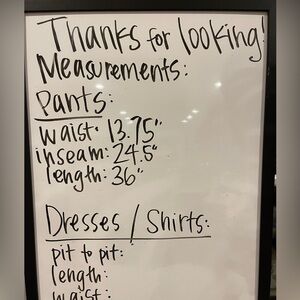 Thanks for looking!
Measurements:
Pants:
waist: 13.75"
inseam: 24.5"
length: 36"
Dresses / Shirts:
pit to pit:
length:
waist: